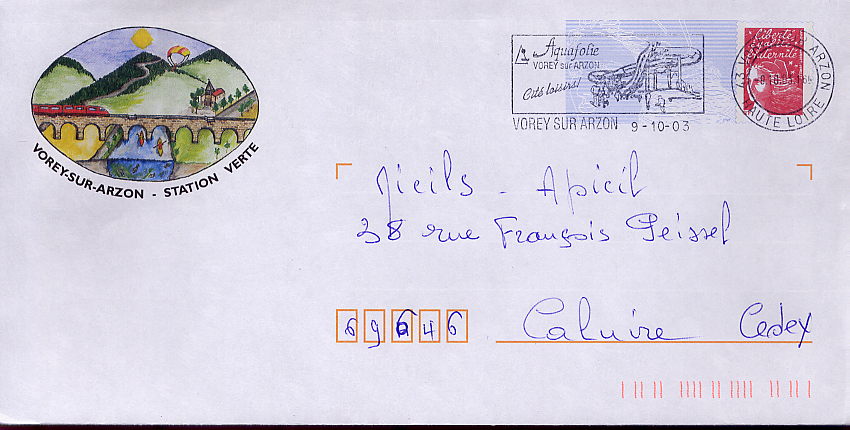 VOREY-SUR-ARZON - STATION VERTE
Aquafolie
VOREY sur ARZON
Côté loisirs!
VOREY SUR ARZON 9-10-03
Liberté
Egalité
Fraternité
ARZON
HAUTE LOIRE
Micils - Apicil
38 rue François Peissel
69646 Caluire Cedex